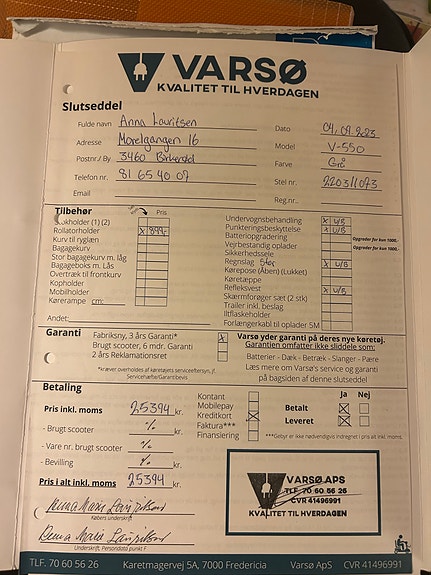 VARSØ
KVALITET TIL HVERDAGEN
Slutseddel
Fulde navn Anna Lauritsen
Dato 04.09.2023
Adresse Morelgangen 16
Model V-550
Postnr./ By 3460 Birkerød
Farve Grå
Telefon nr. 81 65 40 07
Stel nr. 220311073
Email
Reg.nr.
Tilbehør
Pris
Stokholder (1) (2)
Rollatorholder X 999,-
Kurv til ryglæn
Bagagekurv
Stor bagagekurv m. låg
Bagageboks m. Lås
Overtræk til frontkurv
Kopholder
Mobilholder
Kørerampe cm:
Andet:
Undervognsbehandling X U/B
Punkteringsbeskyttelse X U/B
Batteriopgradering Opgrader for kun 1000,-
Vejrbestandig oplader Opgrader for kun 1000,-
Sikkerhedssele
Regnslag Stor X U/B
Kørepose (Åben) (Lukket)
Køretæppe
Refleksvest X U/B
Skærmforøger sæt (2 stk)
Trailer inkl. beslag
Iltflaskeholder
Forlængerkabl til oplader 5M
Garanti
Fabriksny, 3 års Garanti* X
Brugt scooter, 6 mdr. Garanti
2 års Reklamationsret
*kræver overholdes af køretøjets serviceeftersyn, jf. Servicehæfte/Garantibevis
Varsø yder garanti på deres nye køretøj.
Garantien omfatter ikke sliddele som:
Batterier - Dæk - Betræk - Slanger - Pære
Læs mere om Varsø's service og garanti
på bagsiden af denne slutseddel
Betaling
Pris inkl. moms 25394 kr.
- Brugt scooter % kr.
- Vare nr. brugt scooter %
- Bevilling % kr.
Pris i alt inkl. moms 25394 kr.
Kontant
Mobilepay
Kreditkort X
Faktura***
Finansiering
Ja Nej
Betalt X
Leveret X
***Gebyr er ikke nødvendigvis indregnet i pris alt inkl. moms.
Købers underskrift
Underskrift, Persondata punkt F
VARSØ APS
TLF. 70 60 56 26
CVR 41496991
KVALITET TIL HVERDAGEN
TLF. 70 60 56 26 Karetmagervej 5A, 7000 Fredericia Varsø ApS CVR 41496991